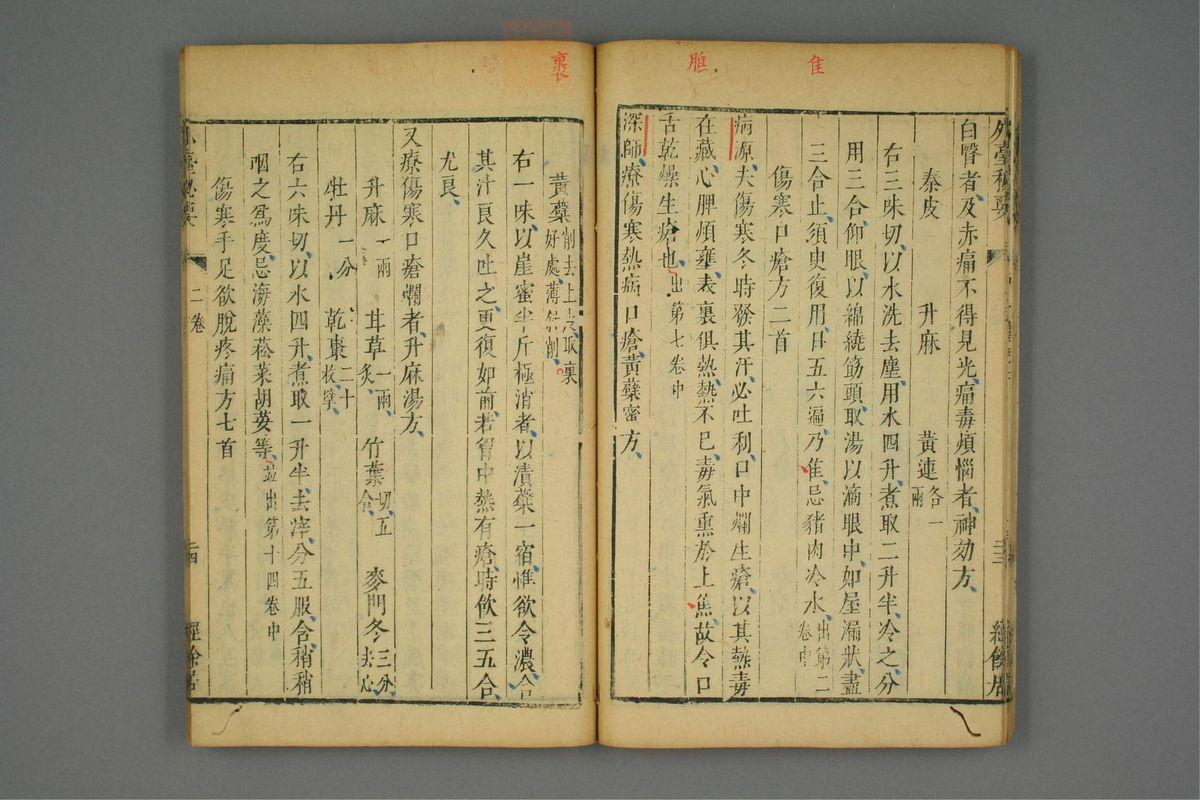 隹
膲
白瞖者及赤痛不得見光痛毒煩惱者神効方
秦皮 升麻 黃連各一兩
右三味切以水洗去塵用水四升煮取二升半冷之分
用三合仰眼以綿繞筯頭取湯以滴眼中如屋漏狀盡
三合止須臾復用日五六遍乃隹忌豬肉冷水出第二卷中
傷寒口瘡方二首
病源夫傷寒冬時發其汗必吐利口中爛生瘡以其熱毒
在藏心脾煩壅表裏俱熱熱不已毒氣熏於上焦故令口
舌乾燥生瘡也出第七卷中
深師療傷寒熱病口瘡黃蘗蜜方
裏
黃蘗削去上皮取裏好處薄斜削
右一味以崖蜜半斤極消者以漬蘗一宿惟欲令濃含
其汁良久吐之更復如前若胷中熱有瘡時飲三五合
尤良
又療傷寒口瘡爛者升麻湯方
升麻一兩 甘草一兩炙 竹葉切五合 麥門冬三分去心
牡丹一分 乾棗二十枚擘
右六味切以水四升煮取一升半去滓分五服含稍稍
咽之爲度忌海藻菘菜胡荽等並出第十四卷中
傷寒手足欲脫疼痛方七首
二卷